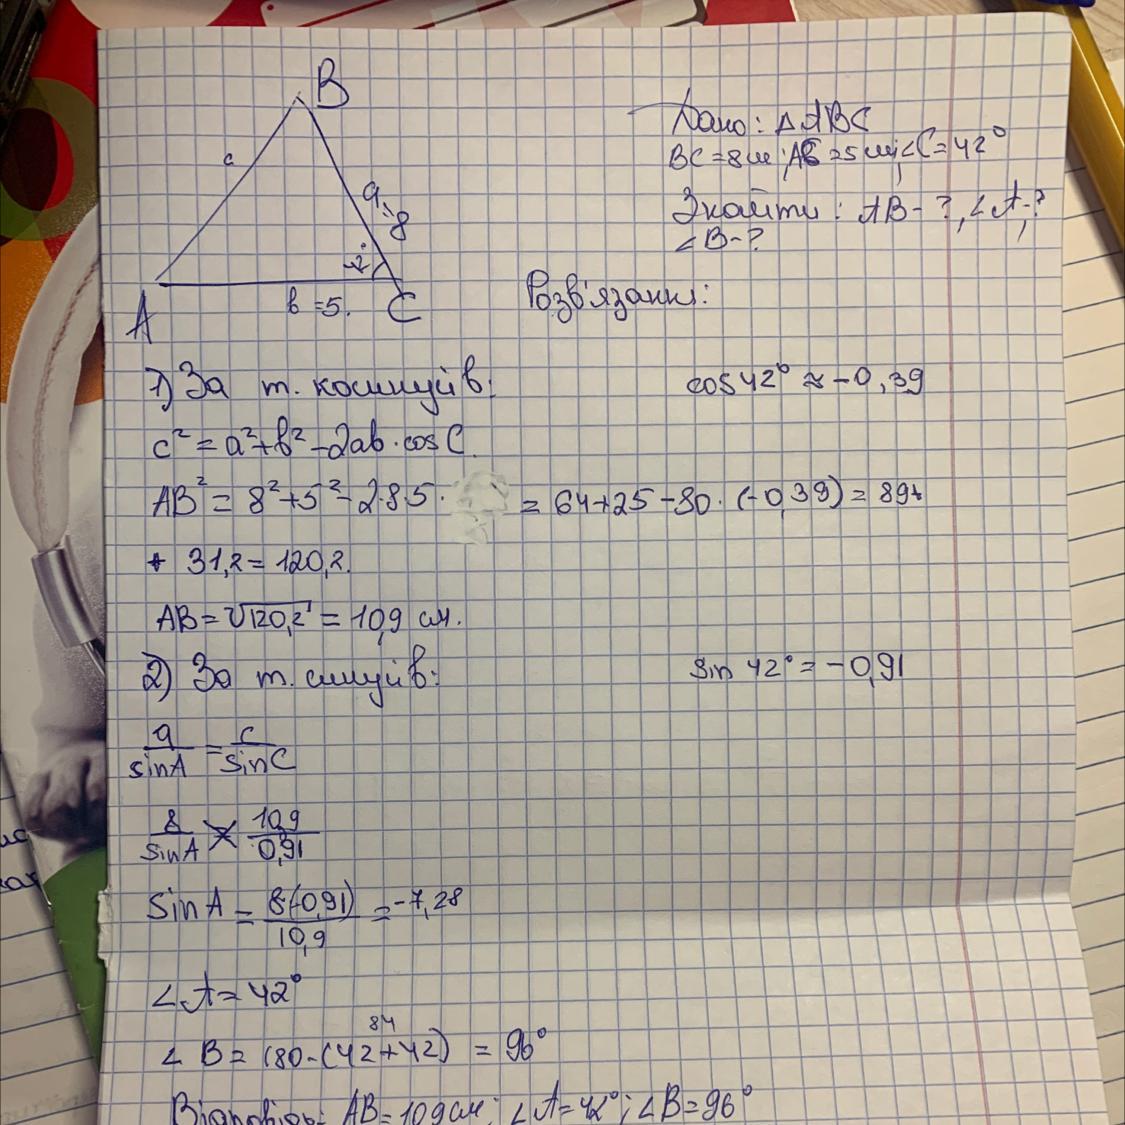 B
c
a=8
A
b=5.
C
Дано: ΔABC
BC=8см; AC=5см; ∠C=42°
Знайти: AB-?, ∠A-?
∠B-?
Розв'язання:
1) За т. косинусів: cos 42° ≈ -0,39
c² = a²+b² - 2ab·cos C.
AB² = 8²+5²-2·8·5· = 64+25-80·(-0,39) = 89+
+ 31,2 = 120,2.
AB = √120,2 = 10,9 см.
2) За т. синусів: sin 42° = -0,91
a/sinA = c/sinC
8/sinA 10,9/0,91
sin A = 8·(-0,91)/10,9 = -7,28
∠A = 42°
84
∠B = 180-(42+42) = 96°
Відповідь: AB=10,9см; ∠A=42°; ∠B=96°